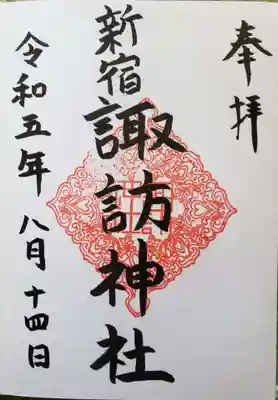 奉拝
新宿諏訪神社
令和五年八月十四日